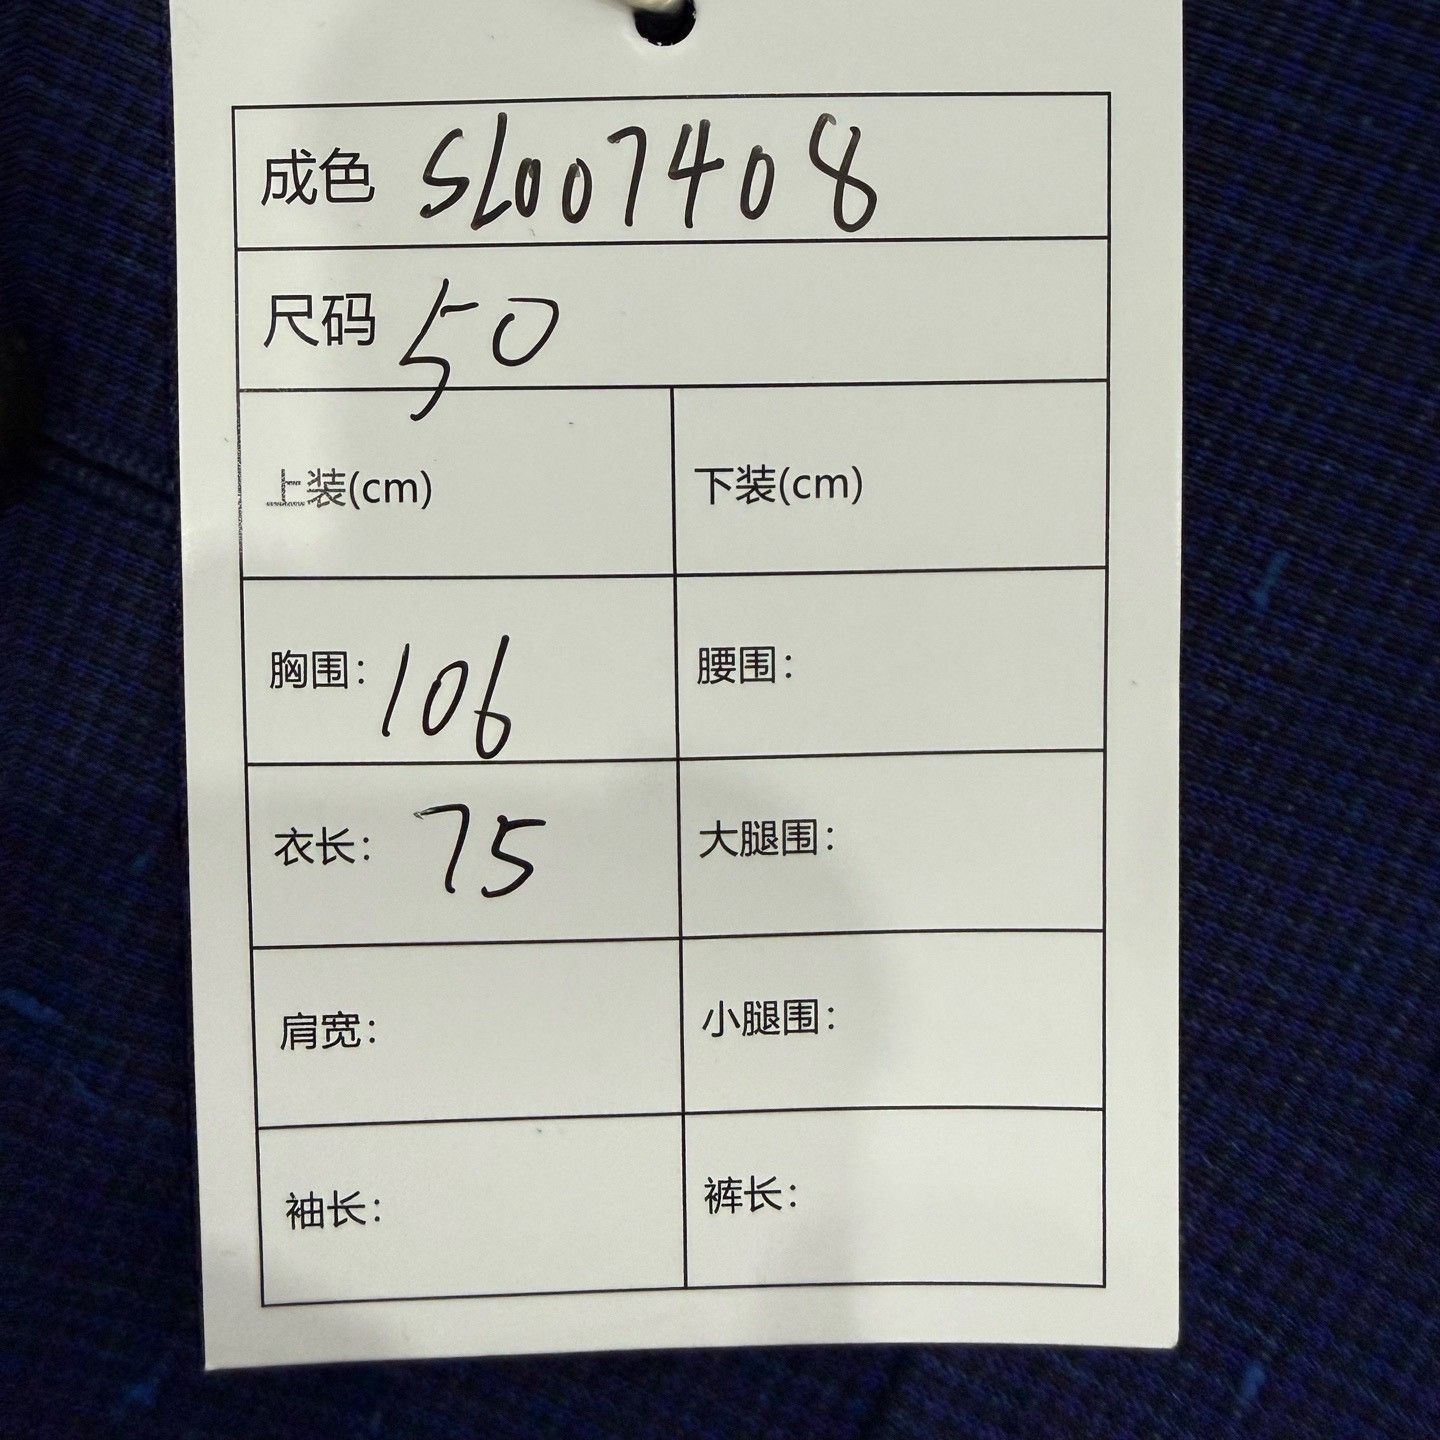 成色 SL007408
尺码 50
上装(cm) 下装(cm)
胸围: 106 腰围:
衣长: 75 大腿围:
肩宽: 小腿围:
袖长: 裤长: